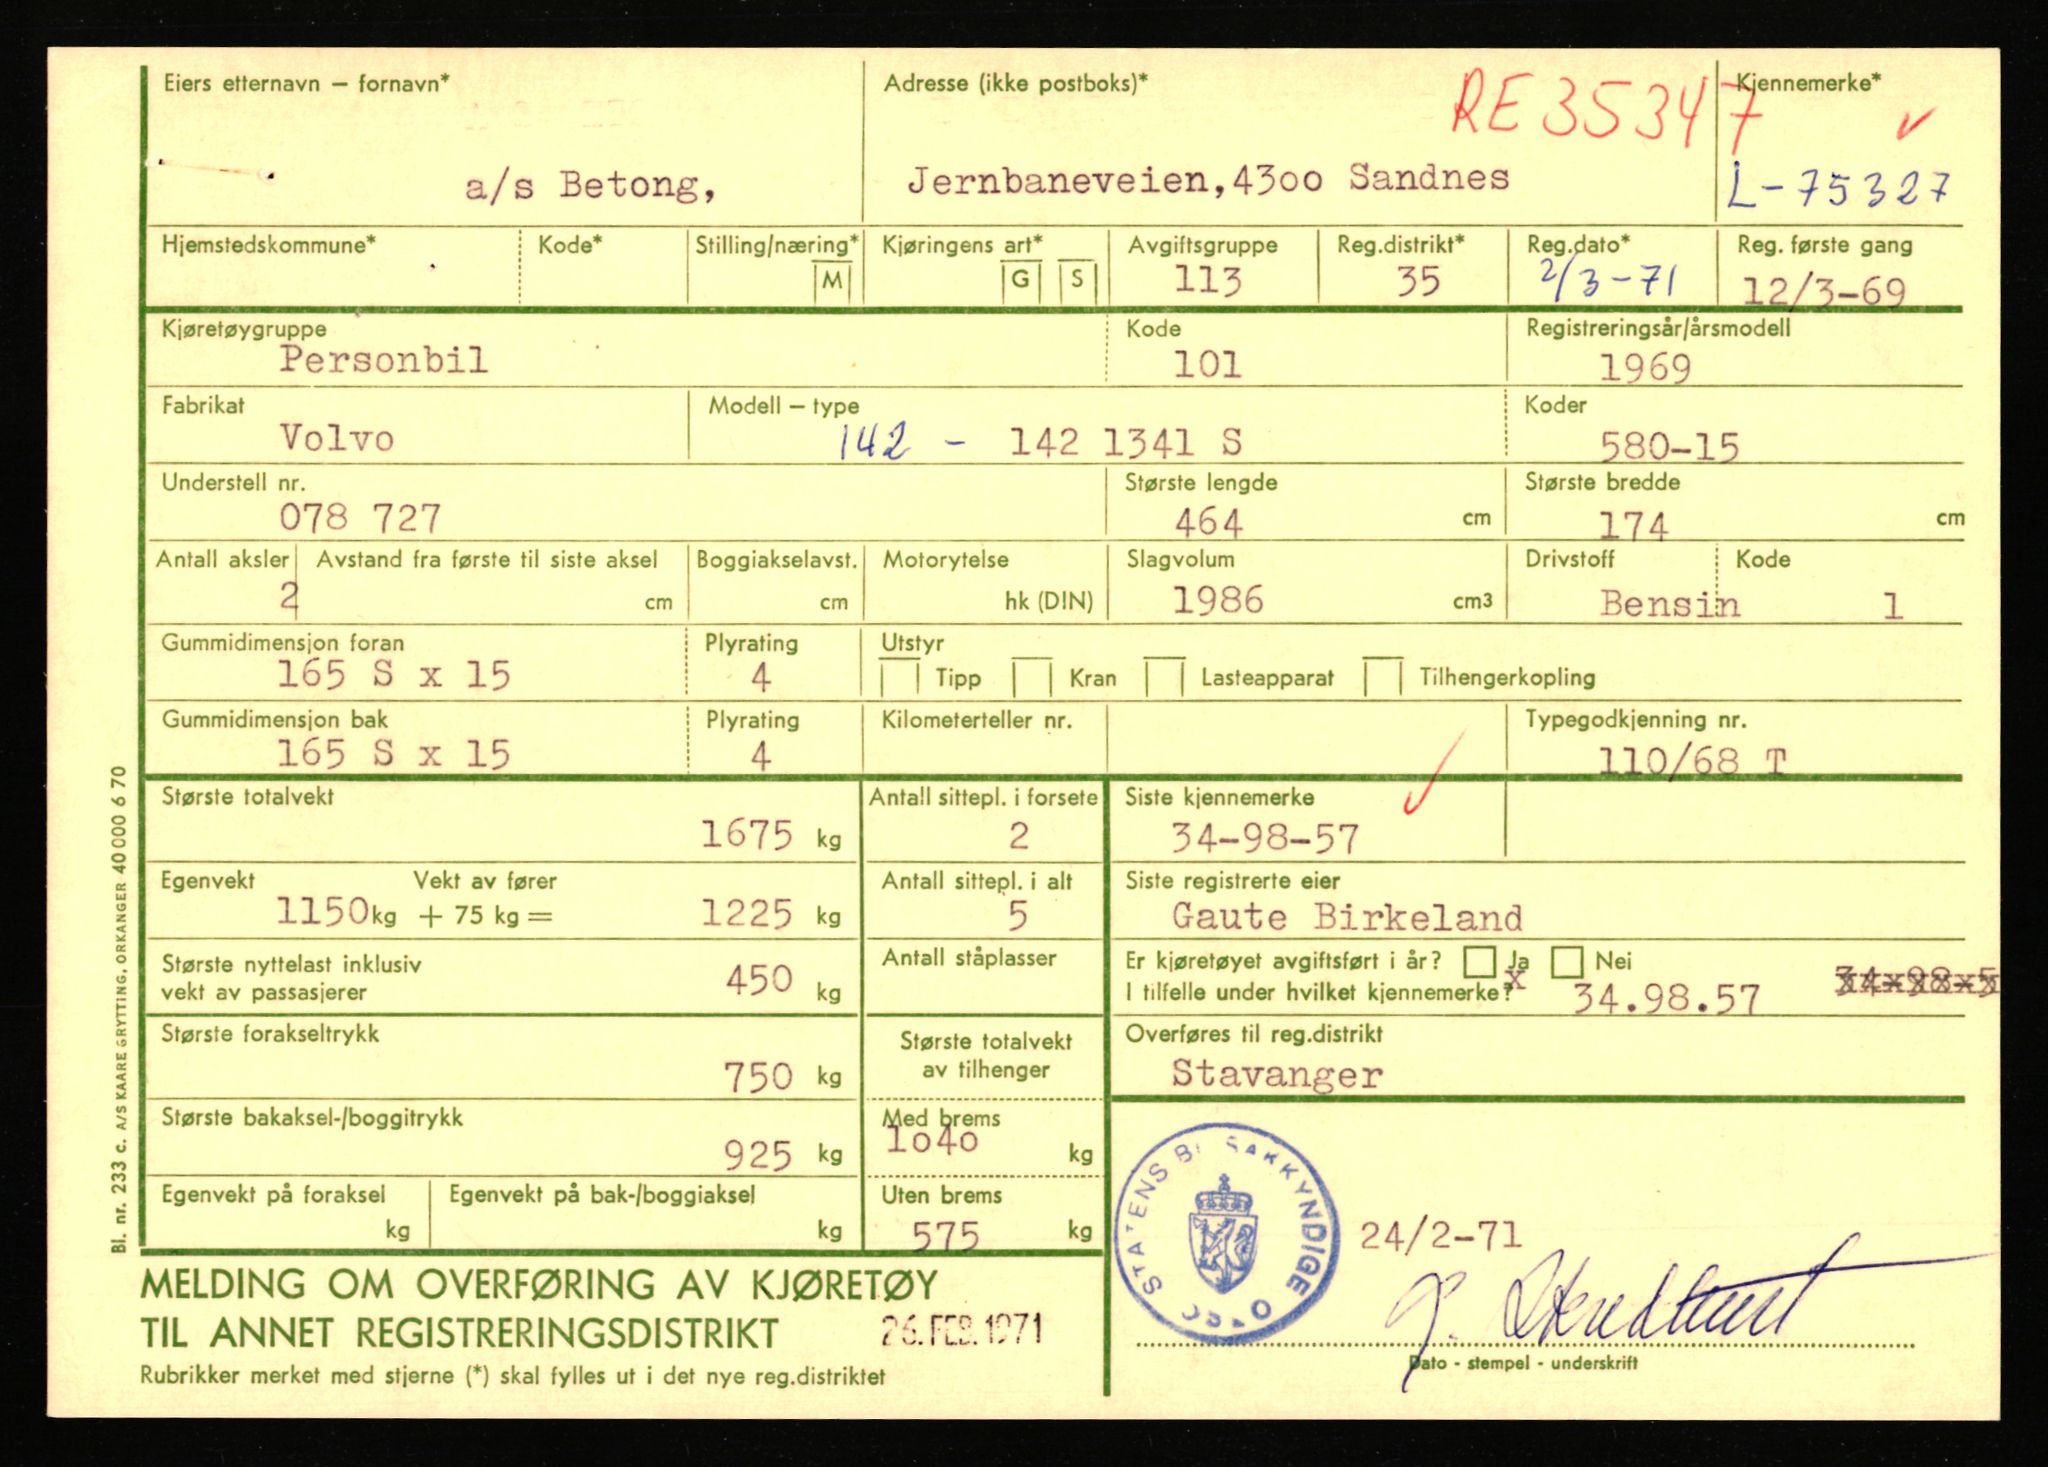 Eiers etternavn – fornavn*
Adresse (ikke postboks)*
RE 35347
Kjennemerke*
a/s Betong,
Jernbaneveien, 4300 Sandnes
L-75327
Hjemstedskommune*
Kode*
Stilling/næring*
M
Kjøringens art*
G
S
Avgiftsgruppe
113
Reg.distrikt*
35
Reg.dato*
2/3-71
Reg. første gang
12/3-69
Kjøretøygruppe
Personbil
Kode
101
Registreringsår/årsmodell
1969
Fabrikat
Volvo
Modell – type
142 - 142 1341 S
Koder
580-15
Understell nr.
078 727
Største lengde
464 cm
Største bredde
174 cm
Antall aksler
2
Avstand fra første til siste aksel
cm
Boggiakselavst.
cm
Motorytelse
hk (DIN)
Slagvolum
1986 cm3
Drivstoff
Bensin
Kode
1
Gummidimensjon foran
165 S x 15
Plyrating
4
Utstyr
Tipp
Kran
Lasteapparat
Tilhengerkopling
Gummidimensjon bak
165 S x 15
Plyrating
4
Kilometerteller nr.
Typegodkjenning nr.
110/68 T
Største totalvekt
1675 kg
Antall sittepl. i forsete
2
Siste kjennemerke
34-98-57
Egenvekt
1150 kg
Vekt av fører
+ 75 kg =
1225 kg
Antall sittepl. i alt
5
Siste registrerte eier
Gaute Birkeland
Største nyttelast inklusiv
vekt av passasjerer
450 kg
Antall ståplasser
Er kjøretøyet avgiftsført i år?
Ja
x
Nei
I tilfelle under hvilket kjennemerke?
34.98.57
34-98-5
Største forakseltrykk
750 kg
Største totalvekt
av tilhenger
Overføres til reg.distrikt
Stavanger
Største bakaksel-/boggitrykk
925 kg
Med brems
1040 kg
Egenvekt på foraksel
kg
Egenvekt på bak-/boggiaksel
kg
Uten brems
575 kg
STATENS BILSAKKYNDIGE
24/2-71
MELDING OM OVERFØRING AV KJØRETØY
TIL ANNET REGISTRERINGSDISTRIKT
26. FEB. 1971
Rubrikker merket med stjerne (*) skal fylles ut i det nye reg.distriktet
Dato - stempel - underskrift
Bl. nr. 233 c. A/S KAARE GRYTTING, ORKANGER 40 000 6 70